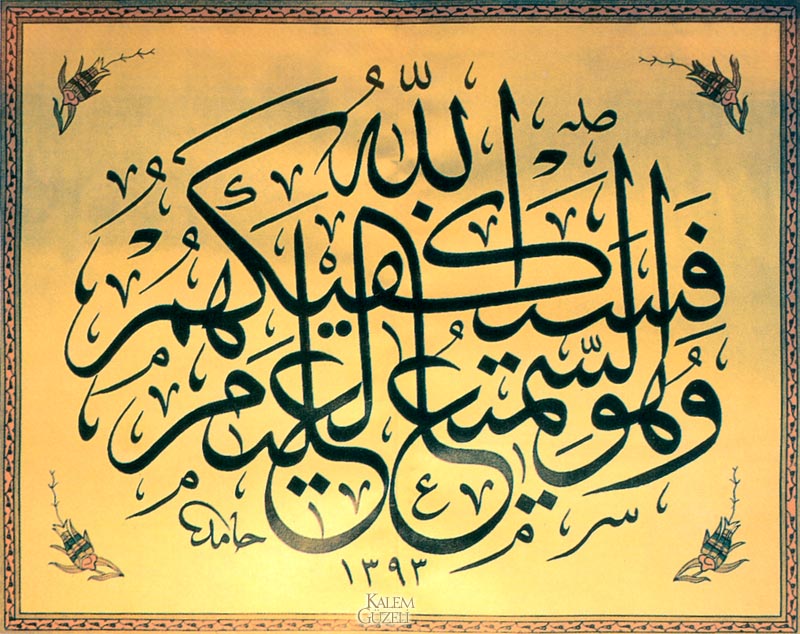 فَسَيَكْفِيكَهُمُ اللَّهُ
وَهُوَ السَّمِيعُ الْعَلِيمُ
حامد
١٣٩٣
KALEM
GÜZELİ